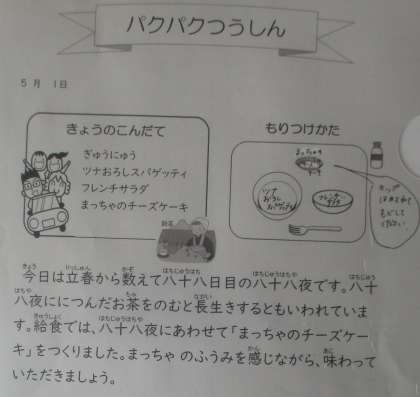 パクパクつうしん
5月 1日
きょうのこんだて
ぎゅうにゅう
ツナおろしスパゲッティ
フレンチサラダ
まっちゃのチーズケーキ
もりつけかた
まっちゃの
チーズ
ケーキ
ツナ
おろし
スパゲッティ
フレンチ
サラダ
カップ
はかさねて
もどして
ください。
今日は立春から数えて八十八日目の八十八夜です。八十
八夜ににつんだお茶をのむと長生きするともいわれていま
す。給食では、八十八夜にあわせて「まっちゃのチーズケー
キ」をつくりました。まっちゃ のふうみを感じながら、味わって
いただきましょう。